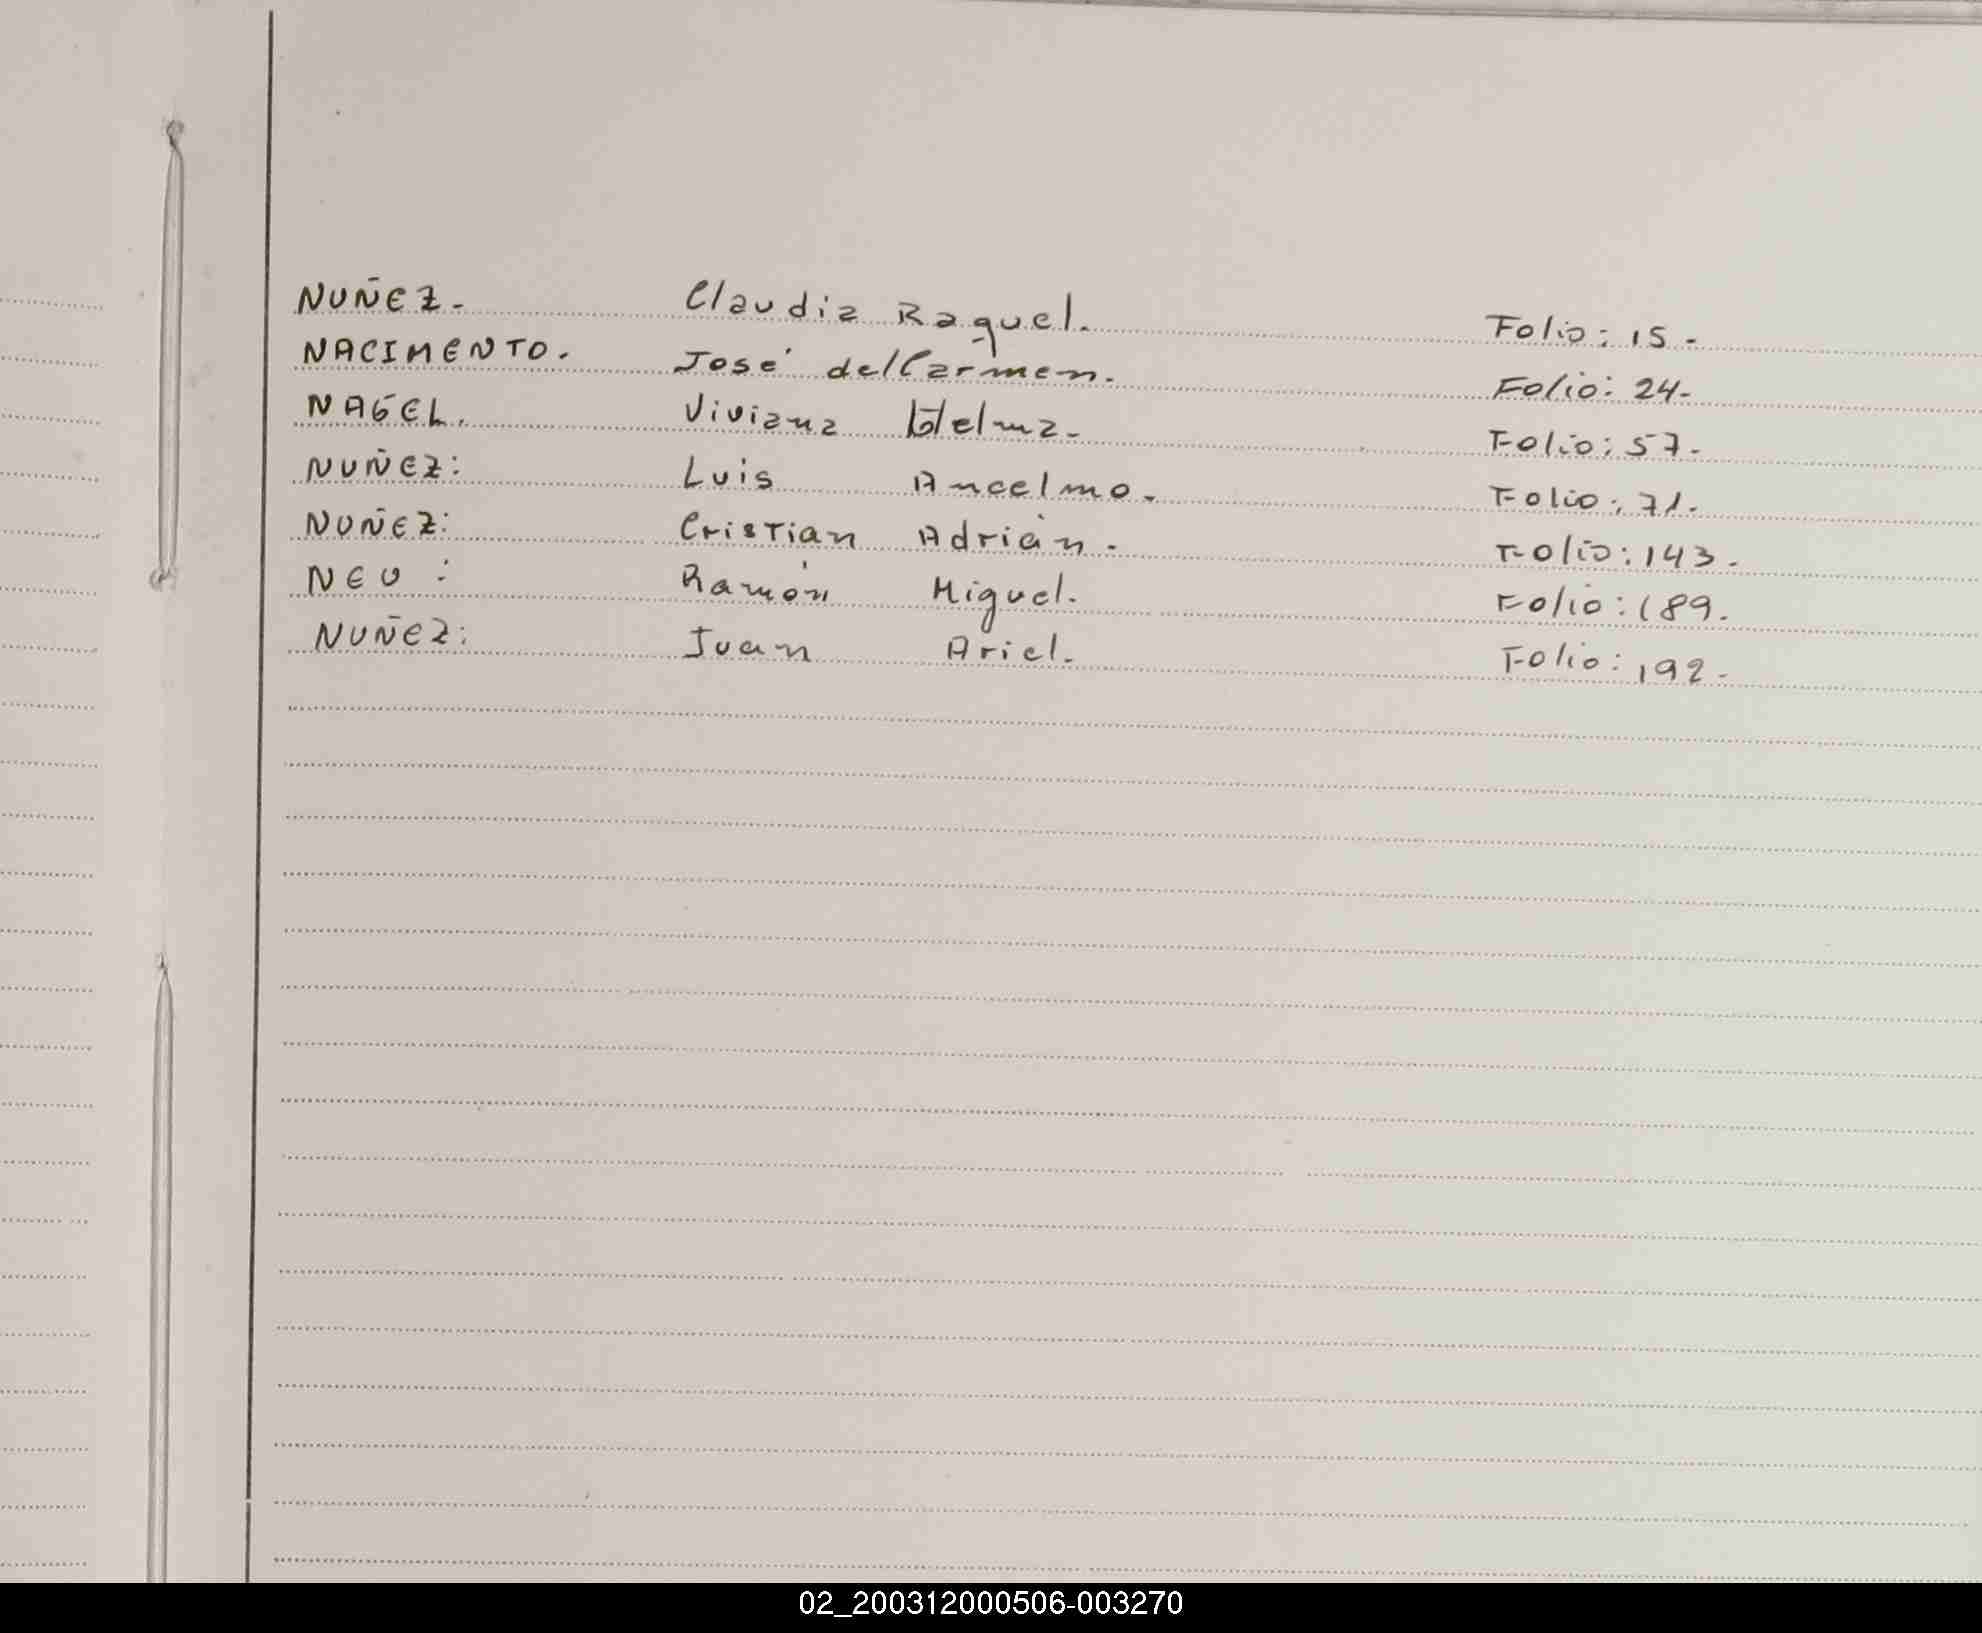 NUÑEZ. Claudia Raquel. Folio: 15.-
NACIMENTO. José del Carmen. Folio: 24.-
NAGEL. Viviana Folio: 57.-
NUÑEZ: Luis Ancelmo.- Folio: 71.-
NUÑEZ: Cristian Adrián.- Folio: 143.-
NEU: Ramón Miguel. Folio: 189.
NUÑEZ: Juan Ariel. Folio: 192.-
02_200312000506-003270